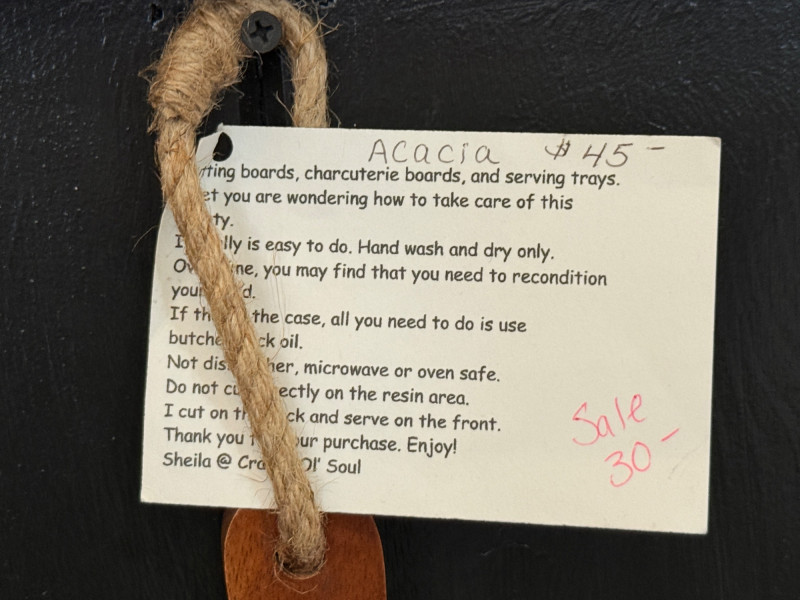 Acacia $45-
tting boards, charcuterie boards, and serving trays.
et you are wondering how to take care of this
ty.
I lly is easy to do. Hand wash and dry only.
Ov ne, you may find that you need to recondition
you d.
If th the case, all you need to do is use
butche ck oil.
Not dis her, microwave or oven safe.
Do not cu ectly on the resin area.
I cut on th ck and serve on the front.
Thank you f our purchase. Enjoy!
Sheila @ Cra Ol' Soul
Sale
30-